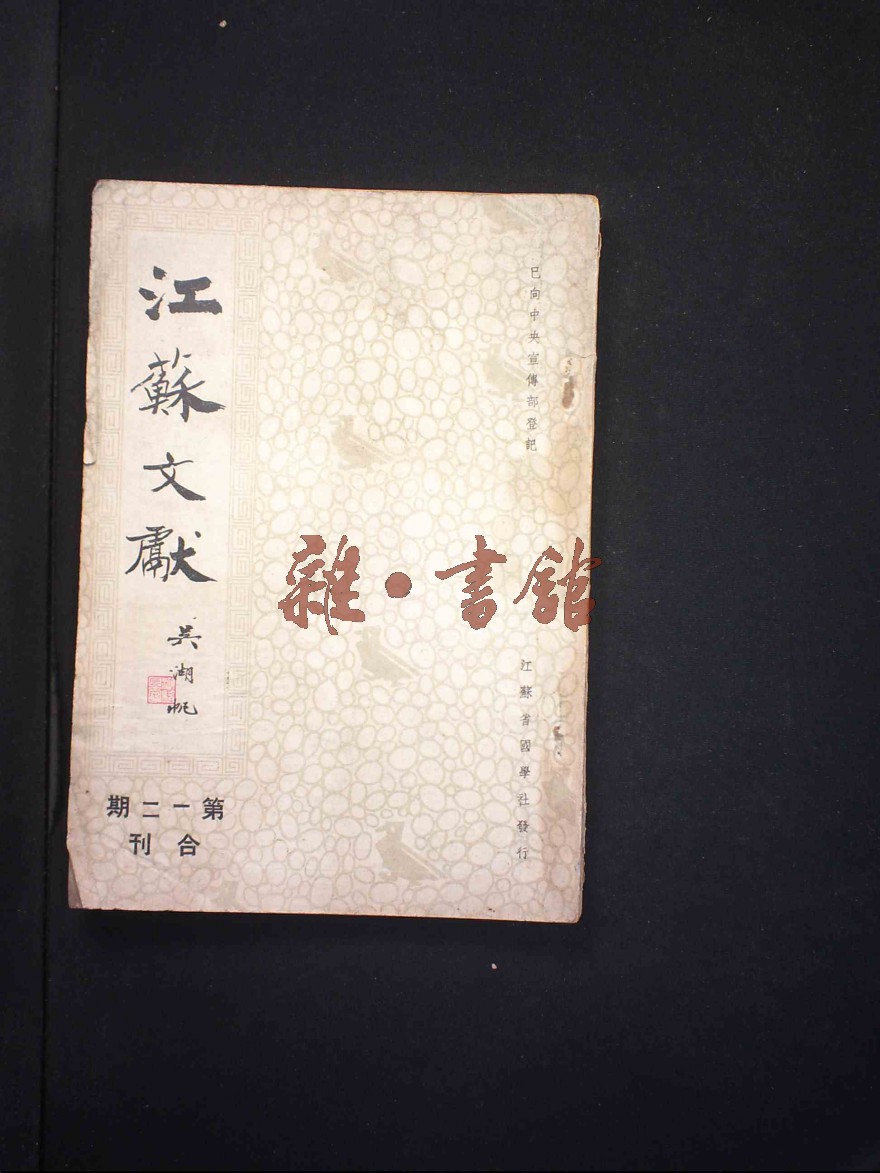 已向中央宣傳部登記
江蘇省國學社發行
江蘇文獻
吳湖帆
第一二期
合刊
雜·書館